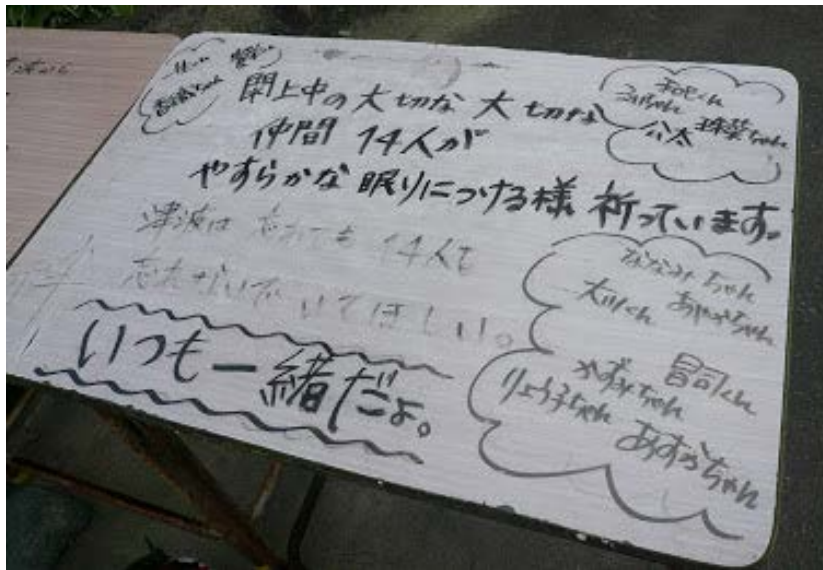 閖上中の大切な大切な
仲間14人が
やすらかな眠りにつける様 祈っています。
津波は忘れても 14人を
忘れないでいてほしい。
いつも一緒だよ。
公太
ななみちゃん
大川くん あやかちゃん
かずみちゃん
りょう子ちゃん
あすかちゃん